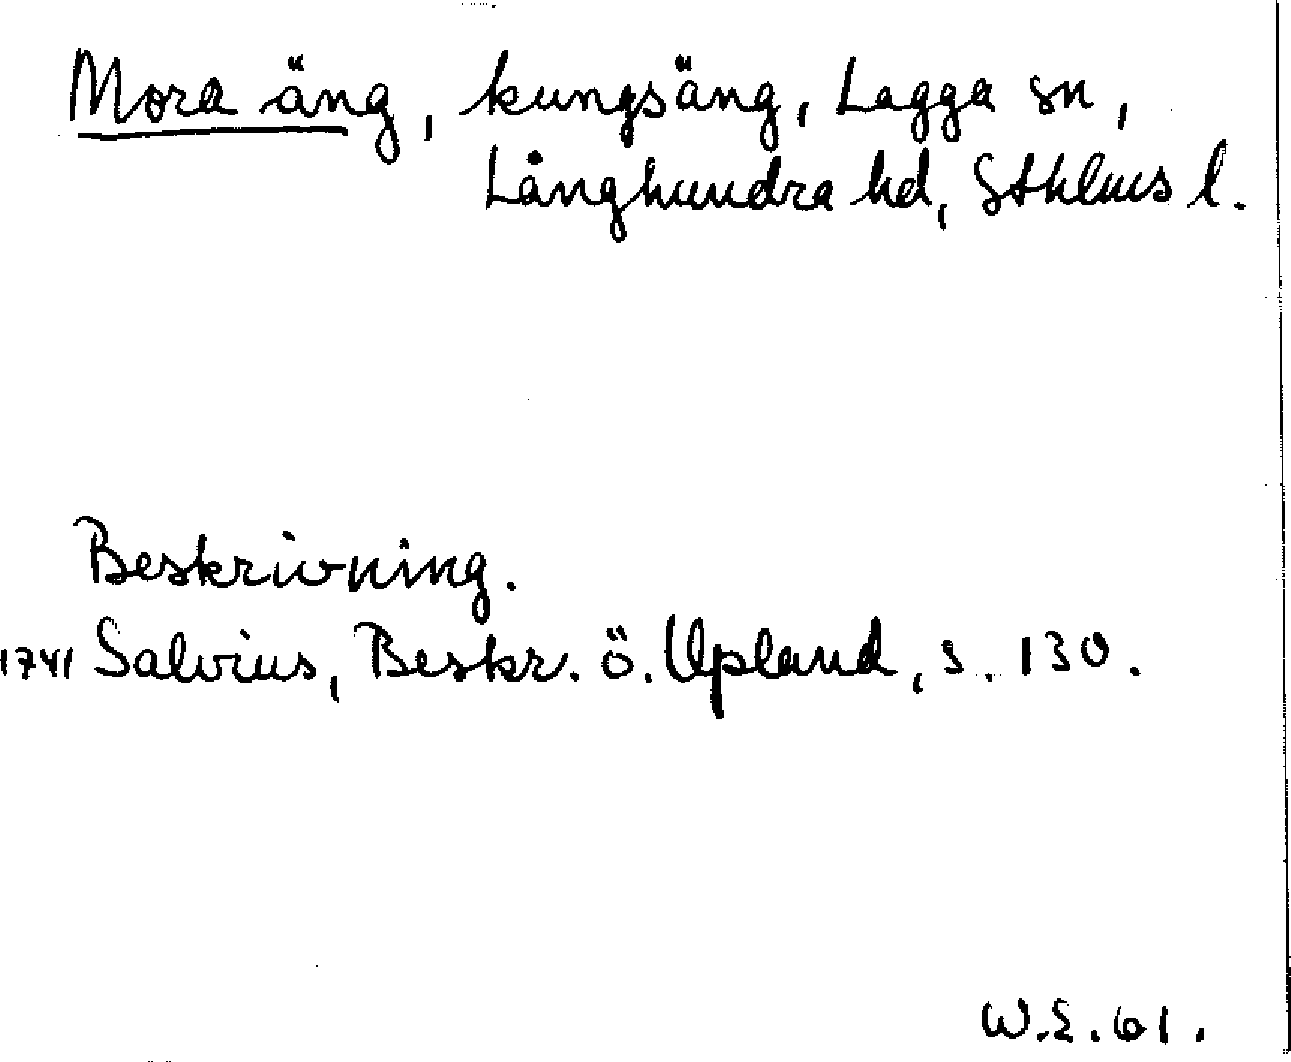 Mora äng, kungsäng, Lagga sn,
Långhundra hd, Sthlms l.
Beskrivning.
1741 Salvius, Beskr. ö. Upland, s. 130.
W.E.61.